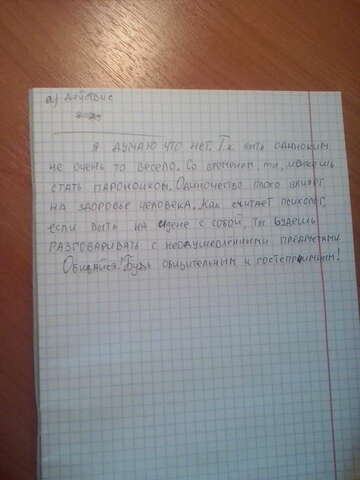 а) действие
Я думаю что нет. Т.к. быть одиноким
не очень то весело. Со временем ты, можешь
стать пароноиком. Одиночество плохо влияет
на здоровье человека. Как считает психолог,
если быть на едене с собой, ты будешь
разговаривать с неодушевлёнными предметами.
Общайся! Будь общительным и гостеприимным!